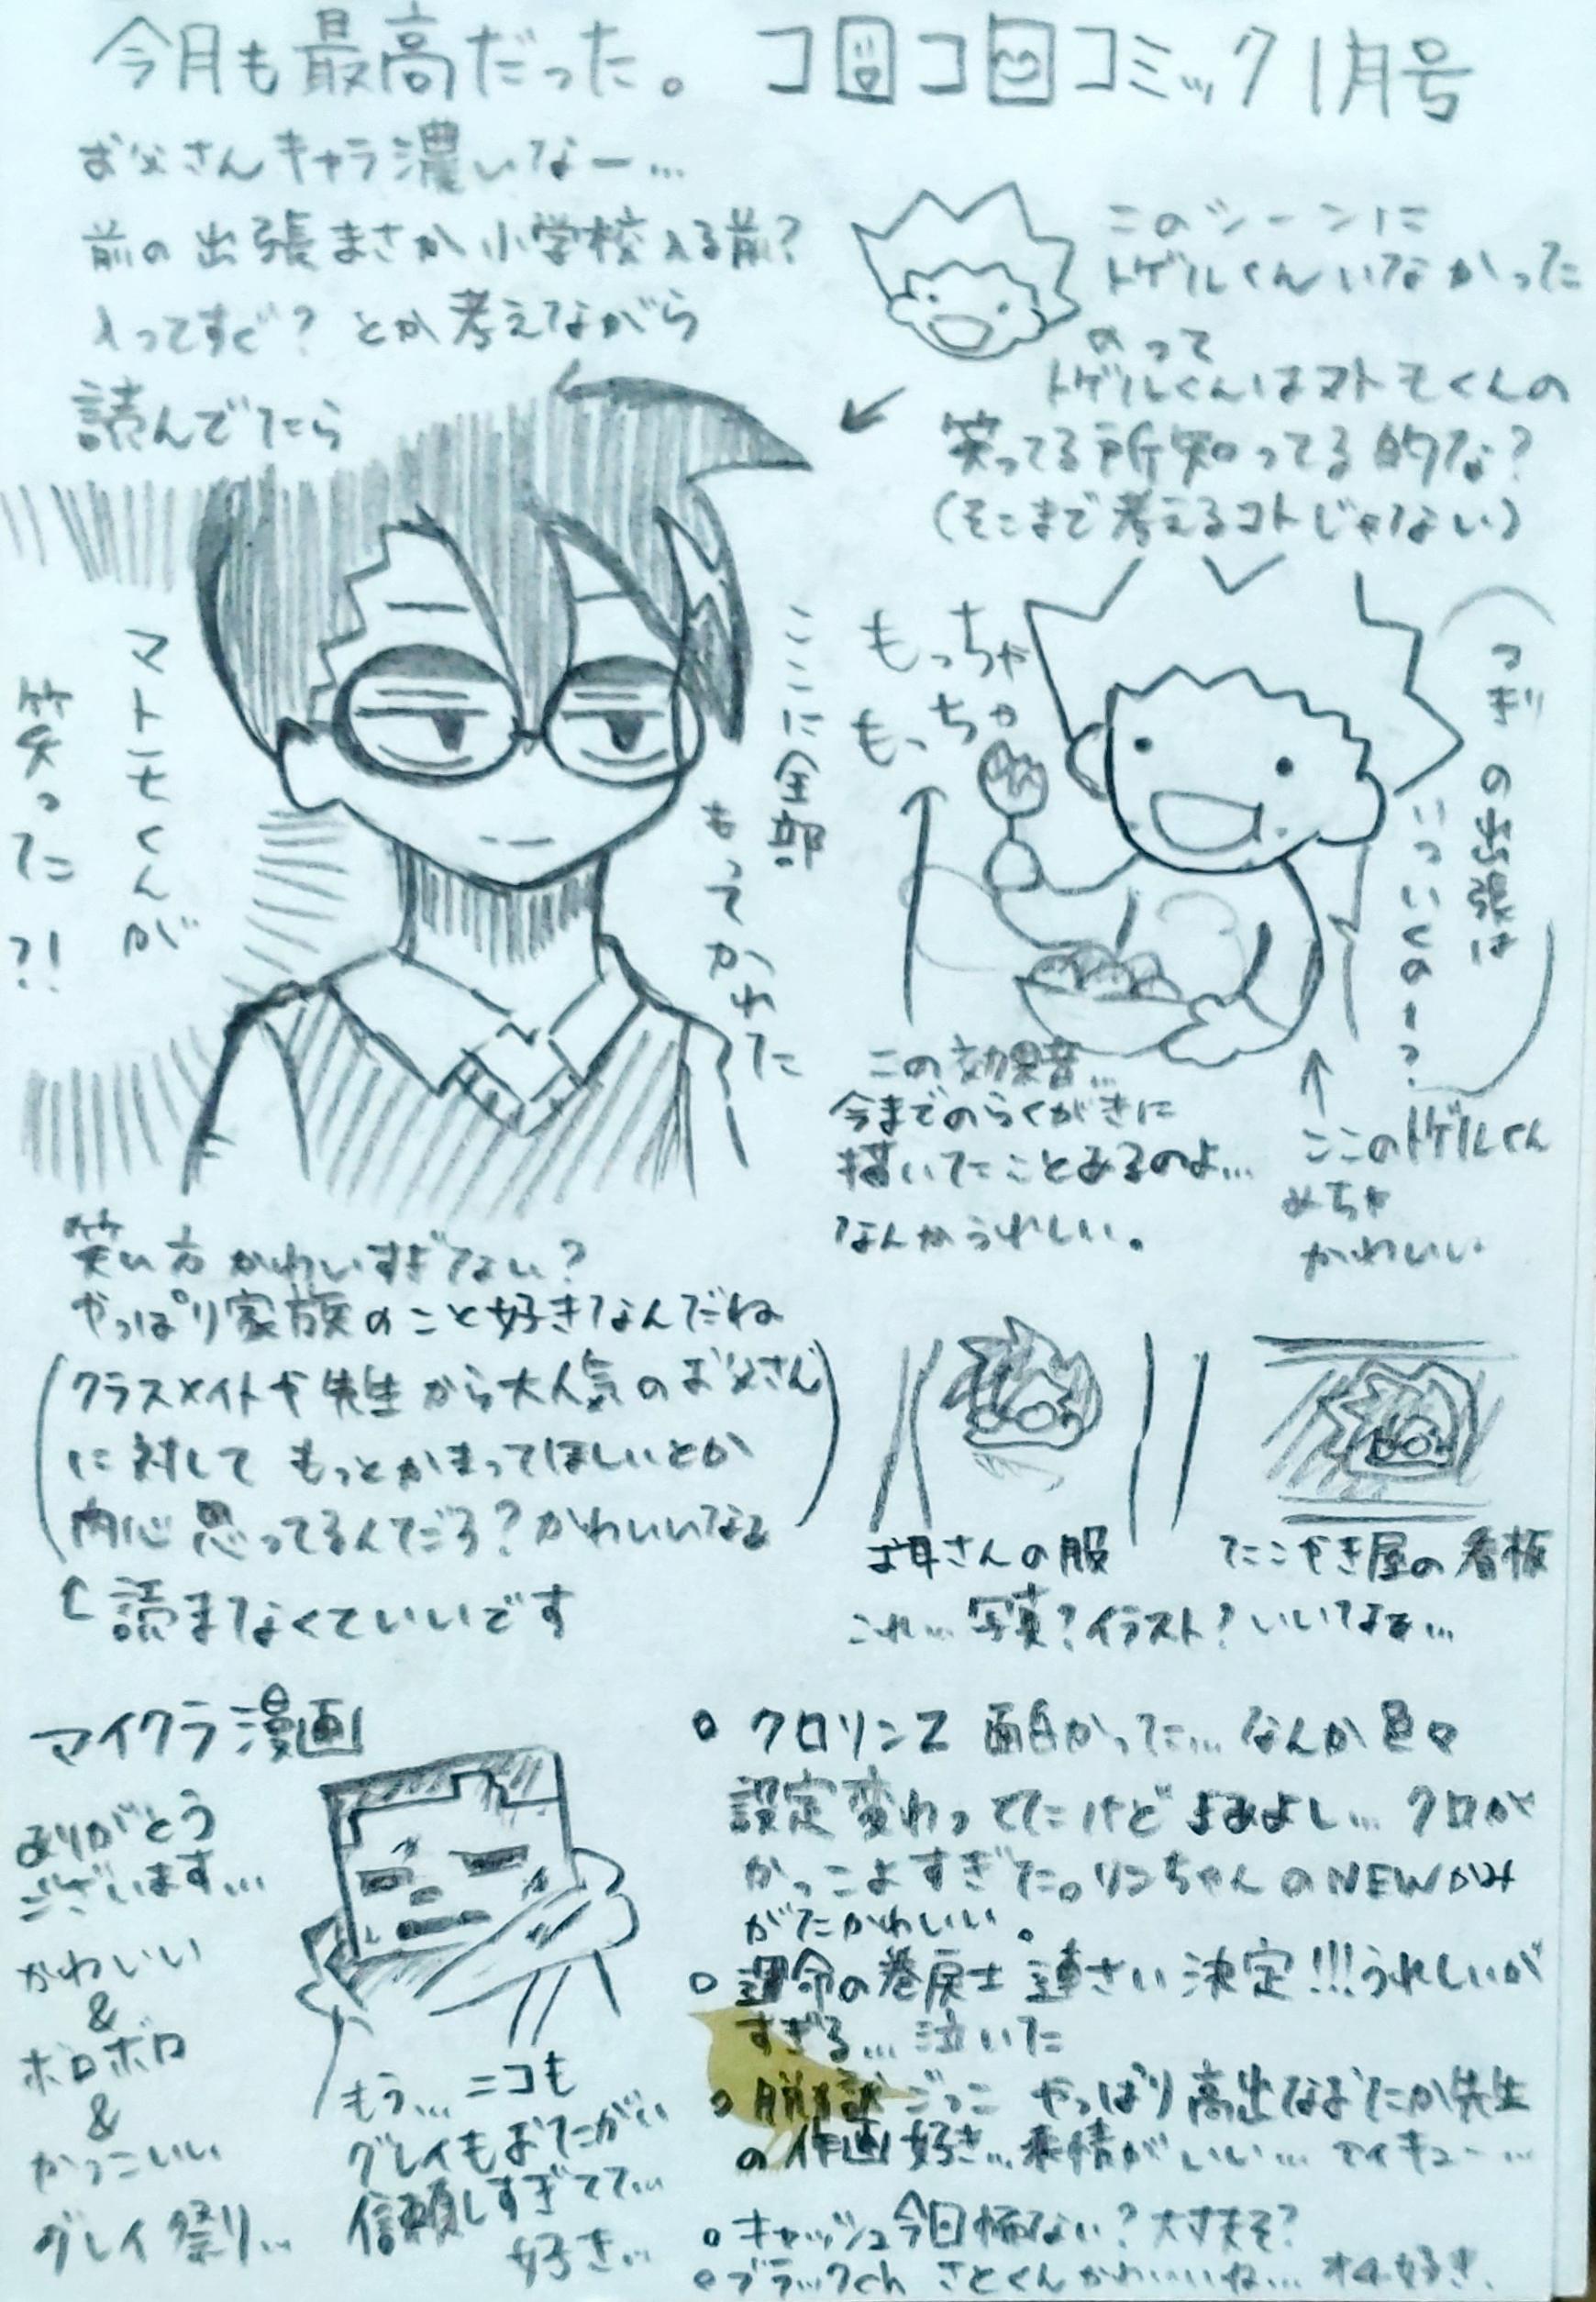 今月も最高だった。 コロコロコミック1月号
お父さんキャラ濃いなー…
前の出張まさか小学校入る前?
入ってすぐ? とか考えながら
読んでたら
マトモくんが
笑った?!
ここに全部
もってかれた
このシーンに
トゲルくんいなかった
のって
トゲルくんはマトモくんの
笑ってる所知ってる的な?
(そこまで考えるコトじゃない)
もっちゃ
もっちゃ
つぎの出張は
いついくのー?
この効果音…
今までのらくがきに
描いてたことあるのよ…
なんかうれしい。
ここのトゲルくん
めちゃ
かわいい
笑い方かわいすぎない?
やっぱり家族のこと好きなんだね
(クラスメイトや先生から大人気のお父さん
に対して もっとかまってほしいとか
内心思ってるんだろ?かわいいなぁ)
↑読まなくていいです
お母さんの服
たこやき屋の看板
これ…写真?イラスト?いいなぁ…
マイクラ漫画
ありがとう
ございます…
かわいい
&
ボロボロ
&
かっこいい
グレイ祭り…
もう…ニコも
グレイもおたがい
信頼しすぎてて…
好き…
クロリンZ 面白かった…なんか色々
設定変わってたけどよきよし… クロが
かっこよすぎた。リンちゃんのNEWかみ
がたかわいい。
運命の巻戻士 連さい決定!!!うれしいが
すぎる…泣いた
脱獄ごっこ やっぱり高出なおたか先生
の作画好き…表情がいい… アイキュー…
キャッシュ今日怖ない?大丈夫そ?
ブラックch さとくんかわいいね… オレ好き.